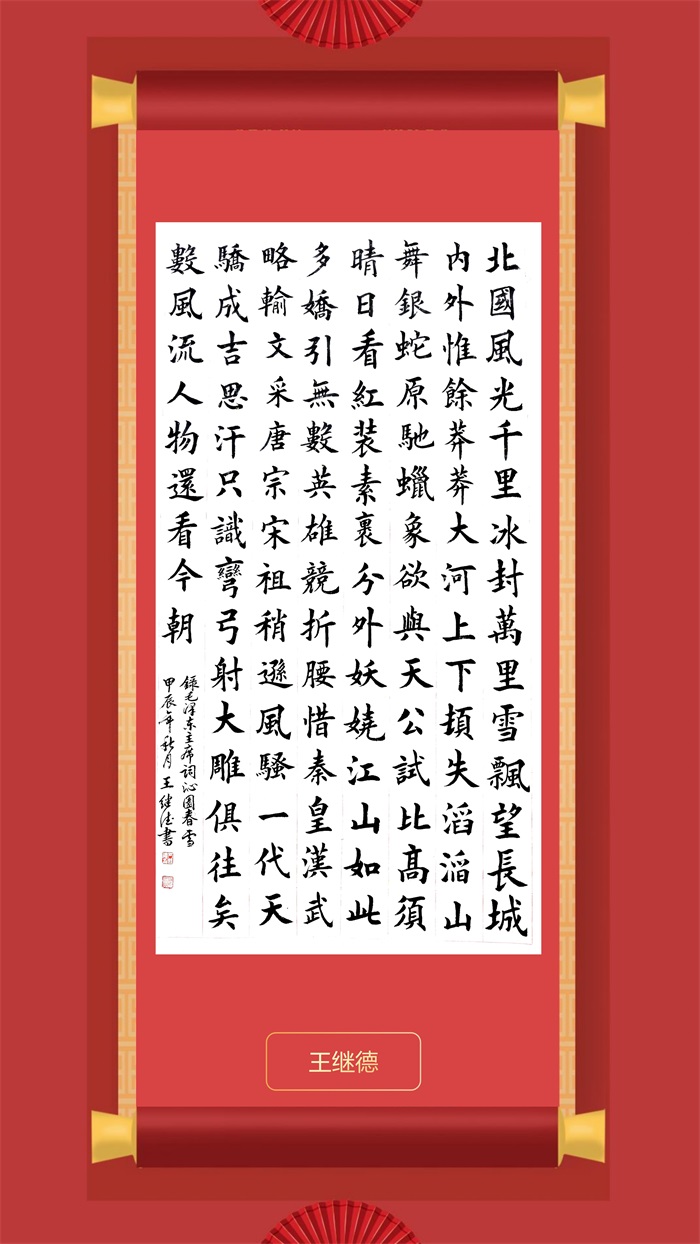 北國風光千里冰封萬里雪飄望長城
内外惟餘莽莽大河上下頓失滔滔山
舞銀蛇原馳蠟象欲與天公試比高須
晴日看紅装素裹分外妖嬈江山如此
多嬌引無數英雄競折腰惜秦皇漢武
略輸文采唐宗宋祖稍遜風騷一代天
驕成吉思汗只識彎弓射大雕俱往矣
數風流人物還看今朝
錄毛泽东主席词沁園春雪
甲辰年秋月王继德書
王继德